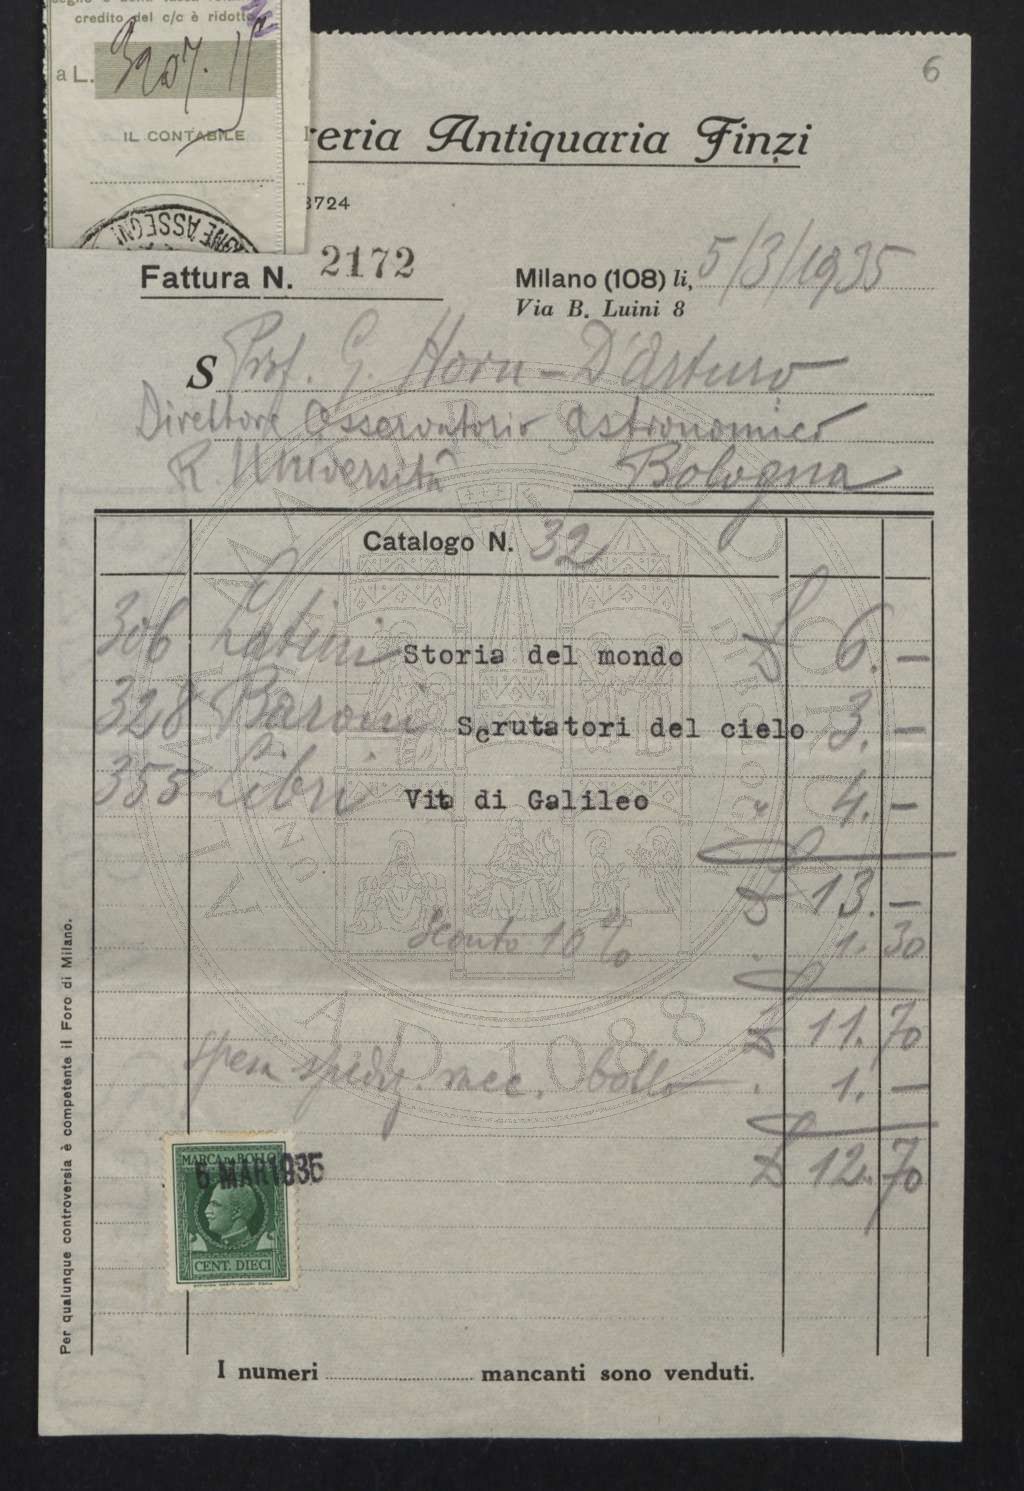 credito del c/c è ridotto
a L. 3207.15
IL CONTABILE
6
reria Antiquaria Finzi
3724
Fattura N. 2172
Milano (108) li, 5/3/1935
Via B. Luini 8
S Prof. G. Horn-D'Arturo
Direttore Osservatorio Astronomico
R. Università Bologna
Catalogo N. 32
306 Latini Storia del mondo £ 6.—
328 Baroni Scrutatori del cielo 3.—
355 Libri Vita di Galileo " 4.—
£ 13.—
Sconto 10% . 1.30
£ 11.70
spesa spediz. racc. bollo . 1.—
£ 12.70
MARCA DA BOLLO
6 MAR 1935
CENT. DIECI
Per qualunque controversia è competente il Foro di Milano.
I numeri mancanti sono venduti.
ALMA MATER STUDIORUM
A.D. 1088